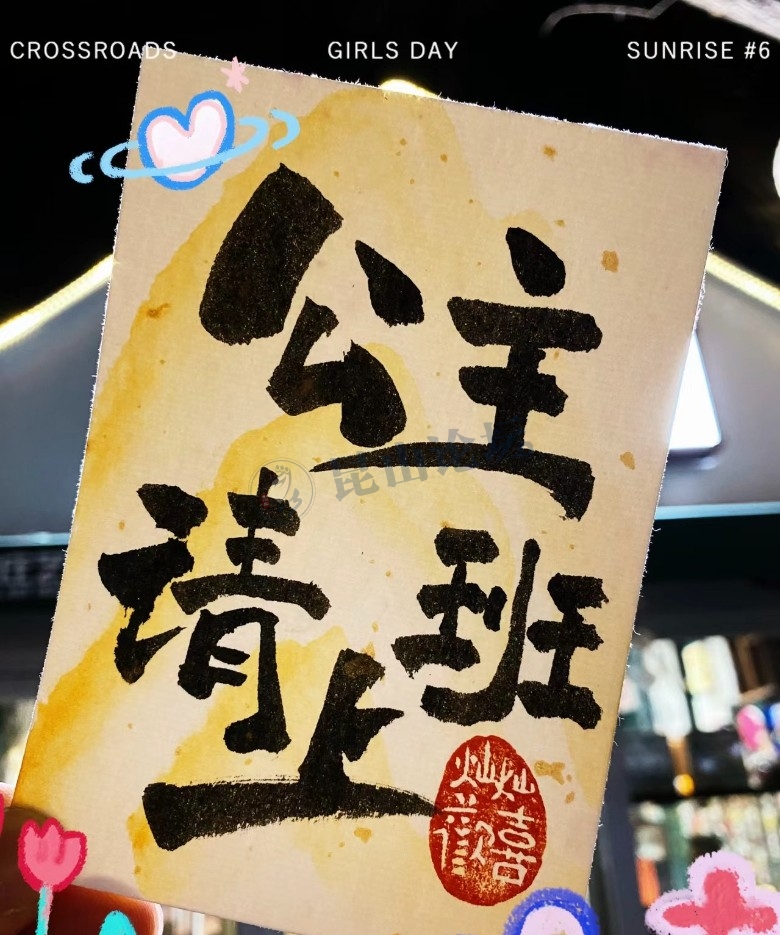 CROSSROADS
GIRLS DAY
SUNRISE #6
公主
请上班
昆山论坛